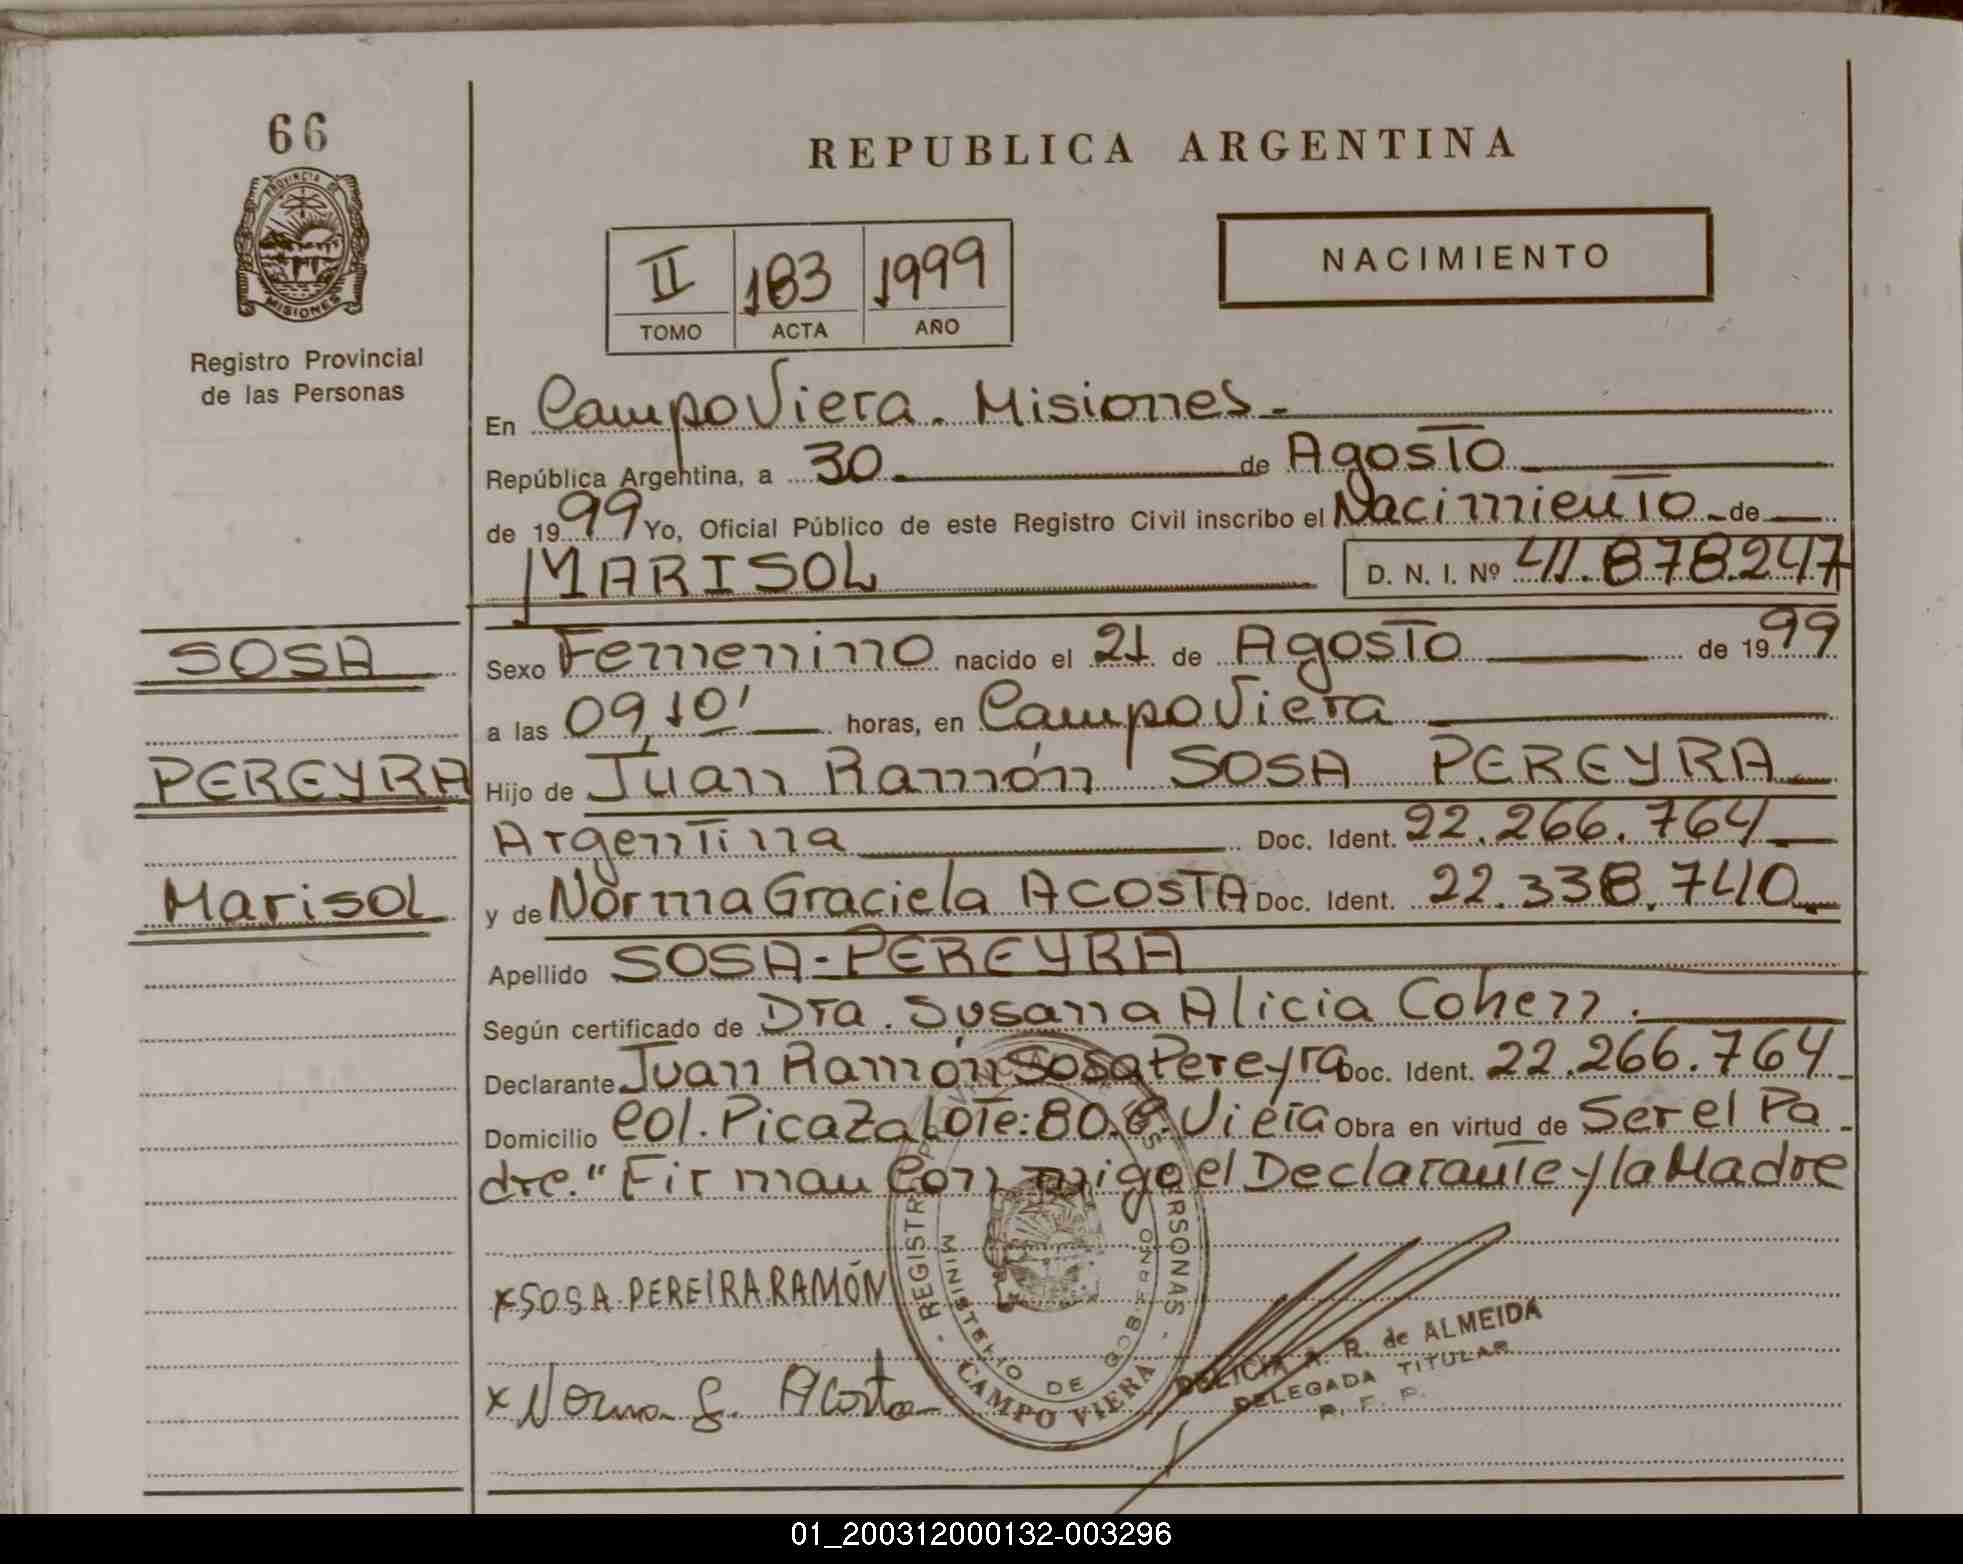 66
PROVINCIA DE
MISIONES
Registro Provincial
de las Personas
REPUBLICA ARGENTINA
II 183 1999
TOMO ACTA AÑO
NACIMIENTO
En Campo Viera. Misiones.-
República Argentina, a 30 de Agosto
de 1999 Yo, Oficial Público de este Registro Civil inscribo el Nacimiento de
MARISOL D. N. I. Nº 41.878.247
SOSA
PEREYRA
Marisol
Sexo Femenino nacido el 21 de Agosto de 1999
a las 09,10' horas, en Campo Viera
Hijo de Juan Ramón SOSA PEREYRA
Argentina Doc. Ident. 22.266.764
y de Norma Graciela ACOSTA Doc. Ident. 22.338.740
Apellido SOSA-PEREYRA
Según certificado de Dra. Susana Alicia Cohen.
Declarante Juan Ramón Sosa Pereyra Doc. Ident. 22.266.764
Domicilio Col. Picaza Lote: 80.C. Viera Obra en virtud de Ser el Pa-
dre." Firman Conmigo el Declarante y la Madre
x SOSA PEREIRA RAMÓN
x Norma G. Acosta
MINISTERIO DE GOBIERNO
CAMPO VIERA
DELICIA A. R. de ALMEIDA
DELEGADA TITULAR
R. F. P.
01_200312000132-003296